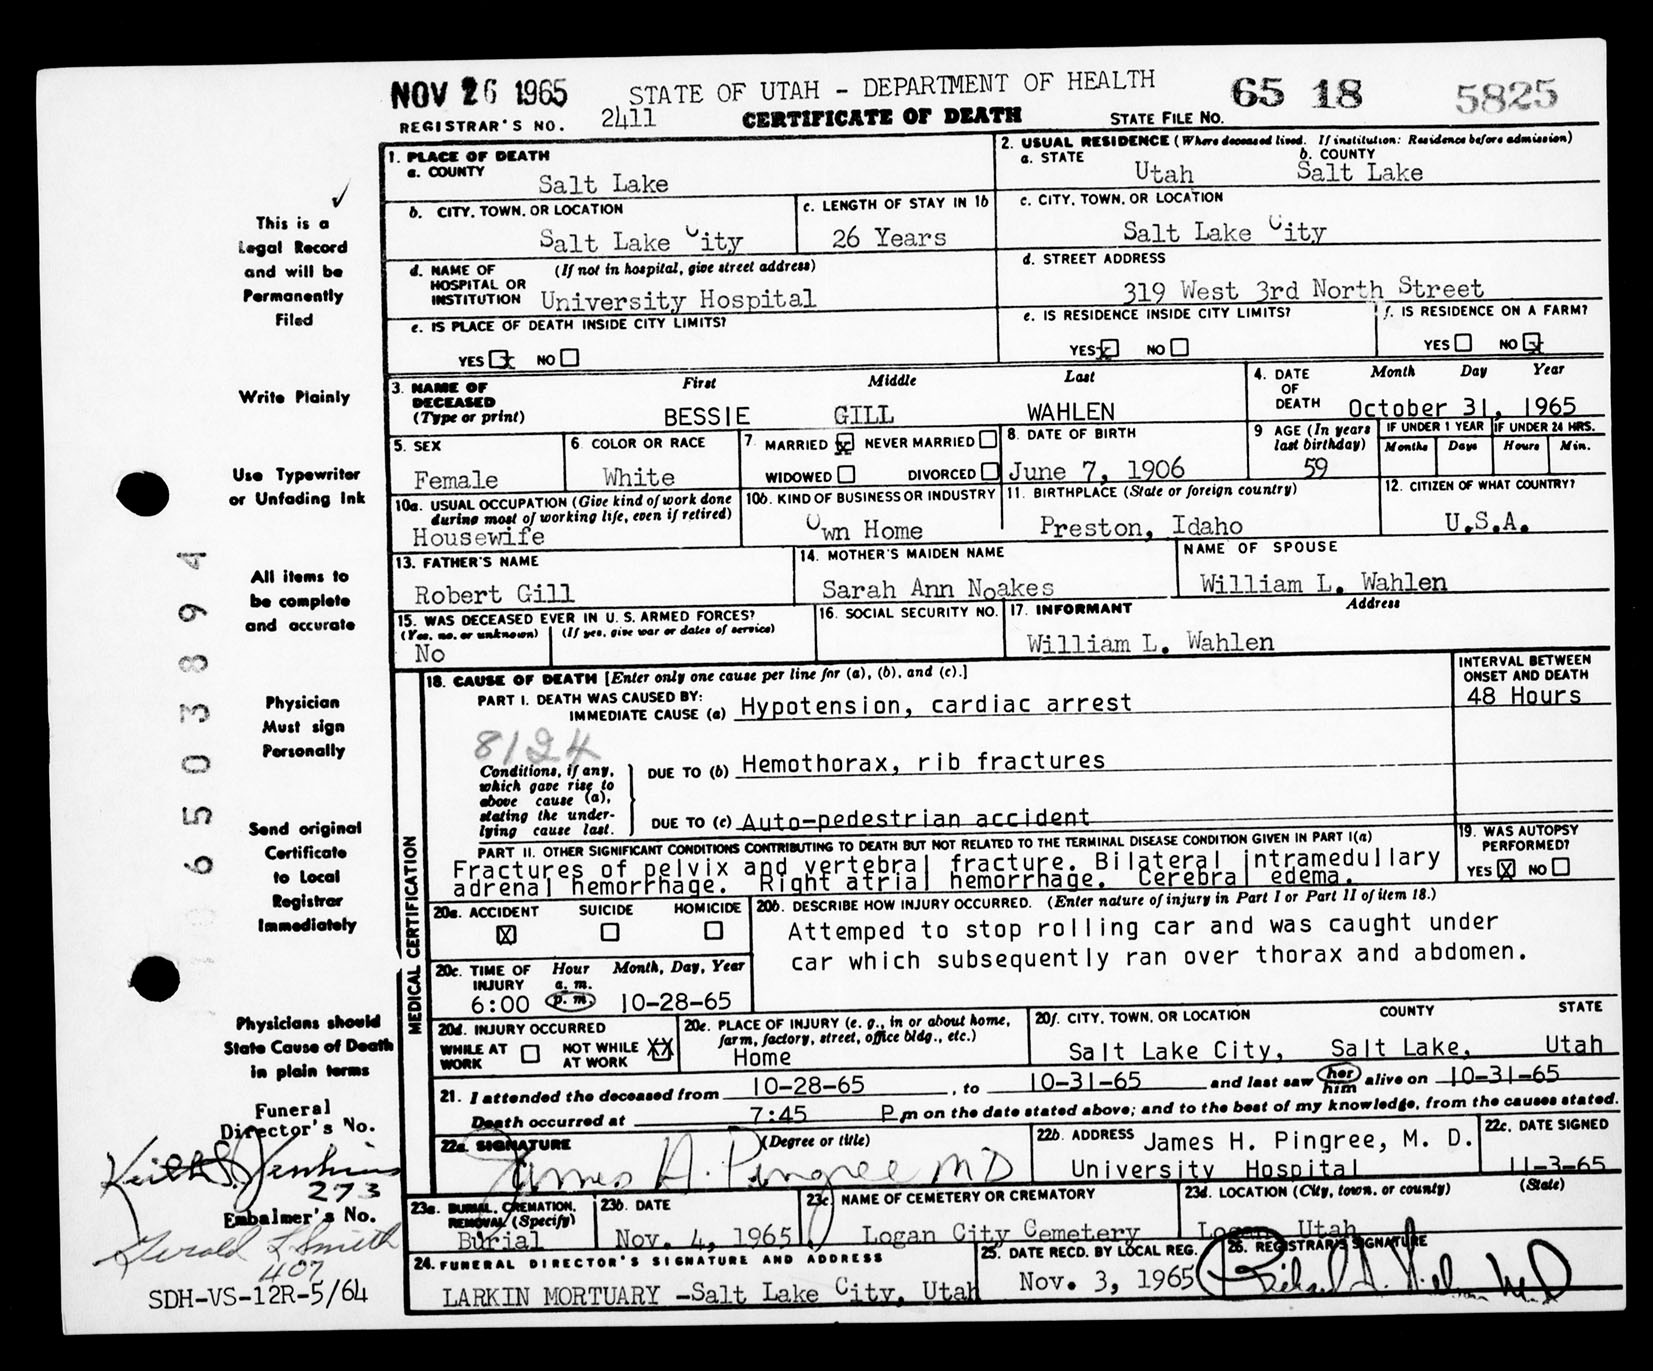 NOV 26 1965 STATE OF UTAH - DEPARTMENT OF HEALTH 65 18 5825
REGISTRAR'S NO. 2411 CERTIFICATE OF DEATH STATE FILE NO.
1. PLACE OF DEATH
a. COUNTY
Salt Lake
2. USUAL RESIDENCE (Where deceased lived. If institution: Residence before admission)
a. STATE Utah b. COUNTY Salt Lake
b. CITY, TOWN, OR LOCATION
Salt Lake City
c. LENGTH OF STAY IN 1b
26 Years
c. CITY, TOWN, OR LOCATION
Salt Lake City
d. NAME OF HOSPITAL OR INSTITUTION (If not in hospital, give street address)
University Hospital
d. STREET ADDRESS
319 West 3rd North Street
e. IS PLACE OF DEATH INSIDE CITY LIMITS?
YES x NO
e. IS RESIDENCE INSIDE CITY LIMITS?
YES x NO
f. IS RESIDENCE ON A FARM?
YES NO x
3. NAME OF DECEASED (Type or print)
First Middle Last
BESSIE GILL WAHLEN
4. DATE OF DEATH Month Day Year
October 31, 1965
5. SEX
Female
6. COLOR OR RACE
White
7 MARRIED x NEVER MARRIED
WIDOWED DIVORCED
8. DATE OF BIRTH
June 7, 1906
9 AGE (In years last birthday)
59
IF UNDER 1 YEAR
Months Days
IF UNDER 24 HRS.
Hours Min.
10a. USUAL OCCUPATION (Give kind of work done during most of working life, even if retired)
Housewife
10b. KIND OF BUSINESS OR INDUSTRY
Own Home
11. BIRTHPLACE (State or foreign country)
Preston, Idaho
12. CITIZEN OF WHAT COUNTRY?
U.S.A.
13. FATHER'S NAME
Robert Gill
14. MOTHER'S MAIDEN NAME
Sarah Ann Noakes
NAME OF SPOUSE
William L. Wahlen
15. WAS DECEASED EVER IN U. S. ARMED FORCES?
(Yes, no, or unknown) (If yes, give war or dates of service)
No
16. SOCIAL SECURITY NO.
17. INFORMANT Address
William L. Wahlen
MEDICAL CERTIFICATION
18. CAUSE OF DEATH [Enter only one cause per line for (a), (b), and (c).]
INTERVAL BETWEEN ONSET AND DEATH
PART I. DEATH WAS CAUSED BY:
IMMEDIATE CAUSE (a) Hypotension, cardiac arrest 48 Hours
8124
Conditions, if any, which gave rise to above cause (a), stating the underlying cause last.
DUE TO (b) Hemothorax, rib fractures
DUE TO (c) Auto-pedestrian accident
PART II. OTHER SIGNIFICANT CONDITIONS CONTRIBUTING TO DEATH BUT NOT RELATED TO THE TERMINAL DISEASE CONDITION GIVEN IN PART I(a)
Fractures of pelvix and vertebral fracture. Bilateral intramedullary
adrenal hemorrhage. Right atrial hemorrhage. Cerebral edema.
19. WAS AUTOPSY PERFORMED?
YES X NO
20a. ACCIDENT SUICIDE HOMICIDE
X
20b. DESCRIBE HOW INJURY OCCURRED. (Enter nature of injury in Part I or Part II of item 18.)
Attemped to stop rolling car and was caught under
car which subsequently ran over thorax and abdomen.
20c. TIME OF INJURY Hour Month, Day, Year
a. m.
6:00 p. m. 10-28-65
20d. INJURY OCCURRED
WHILE AT WORK NOT WHILE AT WORK XX
20e. PLACE OF INJURY (e. g., in or about home, farm, factory, street, office bldg., etc.)
Home
20f. CITY, TOWN, OR LOCATION COUNTY STATE
Salt Lake City, Salt Lake, Utah
21. I attended the deceased from 10-28-65, to 10-31-65 and last saw her him alive on 10-31-65
Death occurred at 7:45 P m on the date stated above; and to the best of my knowledge, from the causes stated.
22a. SIGNATURE (Degree or title)
James H. Pingree MD
22b. ADDRESS James H. Pingree, M. D.
University Hospital
22c. DATE SIGNED
11-3-65
23a. BURIAL, CREMATION, REMOVAL (Specify)
Burial
23b. DATE
Nov. 4, 1965
23c NAME OF CEMETERY OR CREMATORY
Logan City Cemetery
23d. LOCATION (City, town, or county) (State)
Logan Utah
24. FUNERAL DIRECTOR'S SIGNATURE AND ADDRESS
LARKIN MORTUARY -Salt Lake City, Utah
25. DATE RECD. BY LOCAL REG.
Nov. 3, 1965
26. REGISTRAR'S SIGNATURE
This is a
Legal Record
and will be
Permanently
Filed
Write Plainly
Use Typewriter
or Unfading Ink
All items to
be complete
and accurate
Physician
Must sign
Personally
Send original
Certificate
to Local
Registrar
Immediately
Physicians should
State Cause of Death
in plain terms
Funeral
Director's No.
Keith S. Jenkins
273
Embalmer's No.
Gerald L Smith
407
SDH-VS-12R-5/64